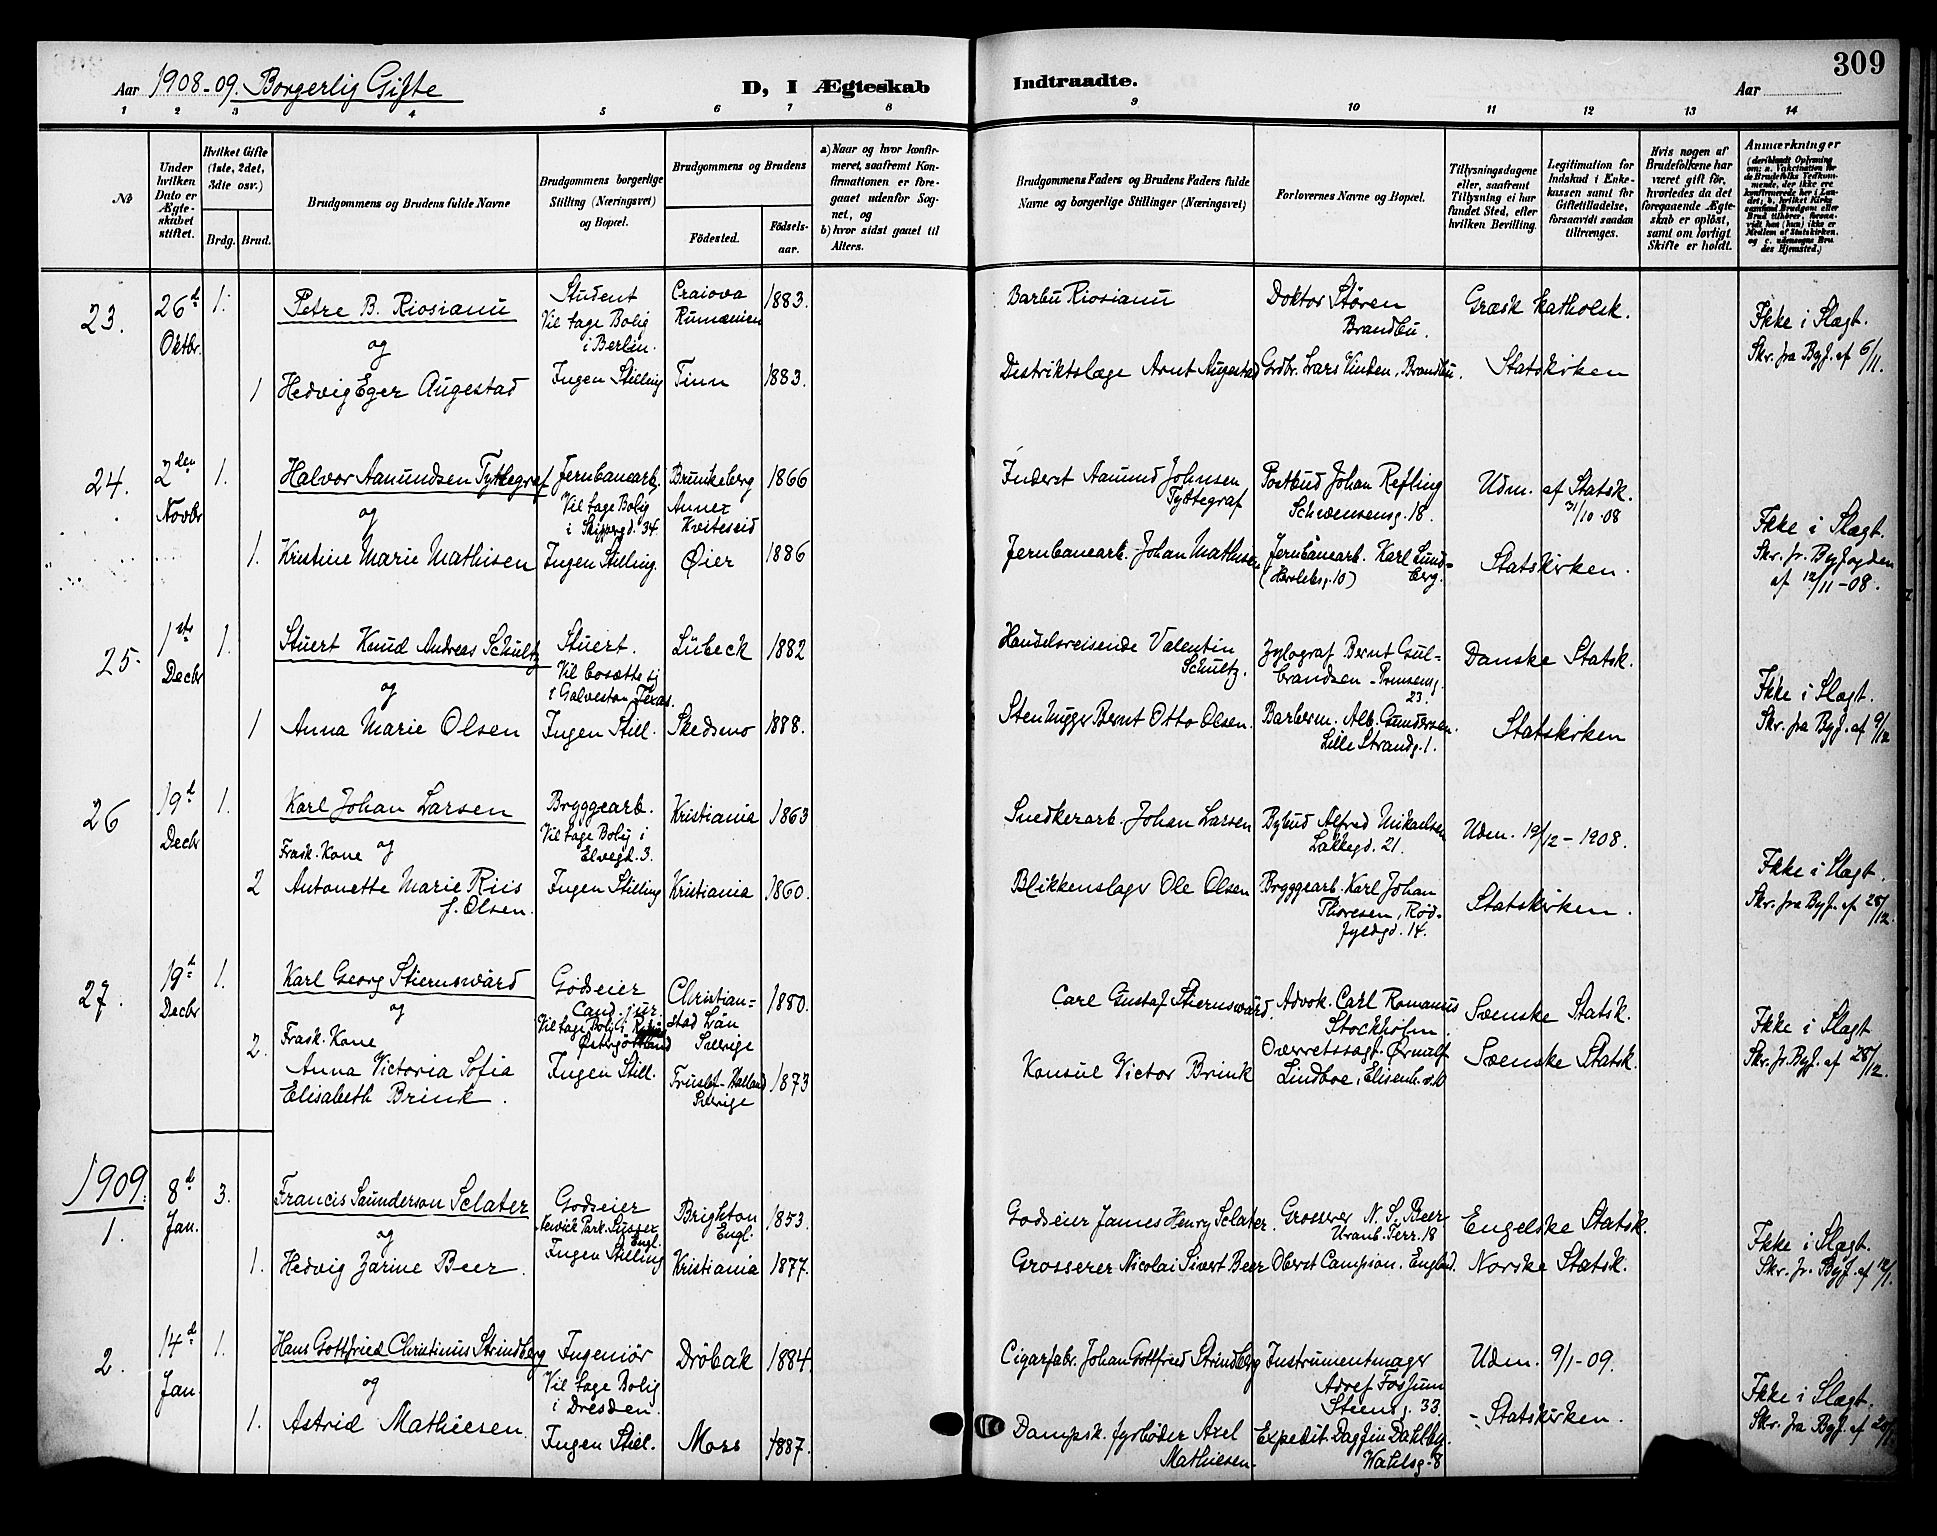 309
Aar 1908-09. Borgerlig Gifte
D, I Ægteskab
Indtraadte.
Aar
1 2 3 4 5 6 7 8 9 10 11 12 13 14
No
Under hvilken Dato er Ægteskabet stiftet.
Hvilket Gifte (1ste, 2det, 3die osv.)
Brdg. Brud.
Brudgommens og Brudens fulde Navne
Brudgommens borgerlige Stilling (Næringsvei) og Bopæl.
Brudgommens og Brudens
Fødested.
Fødselsaar.
a) Naar og hvor konfirmeret, saafremt Konfirmationen er foregaaet udenfor Sognet, og
b) hvor sidst gaaet til Alters.
Brudgommens Faders og Brudens Faders fulde Navne og borgerlige Stillinger (Næringsvei)
Forlovernes Navne og Bopæl.
Tillysningsdagene eller, saafremt Tillysning ei har fundet Sted, efter hvilken Bevilling.
Legitimation for Indskud i Enkekassen samt for Giftetilladelse, forsaavidt saadan tiltrænges.
Hvis nogen af Brudefolkene har været gift før, hvorledes da det foregaaende Ægteskab er opløst, samt om lovligt Skifte er holdt.
Anmærkninger
(deriblandt Oplysning om: a. Vakcination for de Brudefolks Vedkommende, der ikke ere konfirmerede her i Landet; b. hvilket Kirkesamfund Brudgom eller Brud tilhører, forsaavidt han (hun) ikke er Medlem af Statskirken, og c. udensogns Brudes Hjemsted.)
23.
26d Oktbr.
1.
Petre B. Riosianu
Student
Vil tage Bolig
i Berlin.
Craiova
Rumænien
1883.
Barbu Riosianu
Doktor Støren
Brandbu.
Græsk katholsk.
Ikke i Slægt.
Skr. fra Byf. af 6/11.
og
1 Hedvig Eger Augestad
Ingen Stilling
Tinn
1883.
Distriktslæge Arnt Augestad
Grdbr. Lars Vinden, Brandbu.
Statskirken
24.
2den Novbr
1.
Halvor Aamundsen Tyttegraf
Jernbanearb.
Vil tage Bolig
i Skippergd. 34.
Brunkeberg
Annex
Kviteseid
1866
Inderst Aamund Johnsen
Tyttegraf
Postbud Johan Refling
Schwensensg. 18.
Udm. af Statsk.
31/10-08
Ikke i Slægt.
Skr. fr. Byfogden
af 12/11-08.
og
1. Kristine Marie Mathisen
Ingen Stilling.
Øier
1886
Jernbanearb. Johan Mathisen
Jernbanearb. Karl Lundberg.
(Heroldsg. 10)
Statskirken.
25.
1ste Decbr
1.
Stuert Knud Andreas Schultz
Stuert.
Vil bosætte sig
i Galveston Texas.
Lübeck
1882
Handelsreisende Valentin
Schultz.
Xylograf Bernt Gulbrandsen - Prinsensg.
23.
Danske Statsk.
Ikke i Slægt.
Skr. fra Byf. af 9/12
og
1 Anna Marie Olsen
Ingen Still.
Skedsmo
1888.
Stenhugger Bernt Otto Olsen.
Barberm. Alb. Gundersen.
Lille Strandg. 1.
Statskirken
26
19d Decbr
1.
Karl Johan Larsen
Bryggearb.
Vil tage Bolig i
Elvegd. 3.
Kristiania
1863
Snedkerarb. Johan Larsen
Bybud Alfred Mikaelsen
Lakkegd. 21.
Udm. 19/12-1908.
Ikke i Slægt.
Skr. fra Byf. af 28/12.
Frask. Kone og
2 Antonette Marie Riis
f. Olsen.
Ingen Stilling
Kristiania
1860.
Blikkenslager Ole Olsen
Bryggearb. Karl Johan
Thoresen, Rødfyldgd. 14.
Statskirken.
27.
19d Decbr
1.
Karl Georg Stiernswärd
Godseier
Cand. jur.
Vil tage Bolig i
Østergötland
Christianstad Län
Sverige
1880.
Carl Gustaf Stiernswärd.
Advok. Carl Romanus
Stockholm.
Svenske Statsk.
Ikke i Slægt
Skr. fr. Byf. af 28/12.
og
2. Frask. Kone
Anna Victoria Sofia
Elisabeth Brink.
Ingen Still.
Halland
Sverige
1873
Konsul Victor Brink
Overretssagf. Ørnulf
Lindboe, Elisenb.v.
Svenske Statsk.
1909.
1.
8d Jan.
3.
Francis Saunderson Sclater
Godseier
Newick Park. Sussex
Engl.
Brighton
Engl.
1853.
Godseier James Henry Sclater.
Grosserer N. S. Beer
Uranb. Terr. 18
Engelske Statsk.
Ikke i Slægt.
Skr. fr. Byf. af 12/1.
og
1. Hedvig Zarine Beer.
Ingen Stilling
Kristiania
1877.
Grosserer Nicolai Sivert Beer
Oberst Campion. England.
Norske Statsk.
2.
14d Jan.
1.
Hans Gottfried Christinus Strindberg
Ingeniør
Vil tage Bolig
i Dresden.
Drøbak
1884
Cigarfabr. Johan Gottfried Strindberg
Instrumentmager
Adolf Fossum
Steensg. 33.
Udm. 9/1-09.
Ikke i Slægt.
Skr. fra Byf. af
og
1. Astrid Mathiesen.
Ingen Still.
Moss
1887.
Dampsk. fyrbøder Axel
Mathiesen.
Expedit. Dagfin Dahlby.
Wahlsg. 8
- Statskirken.